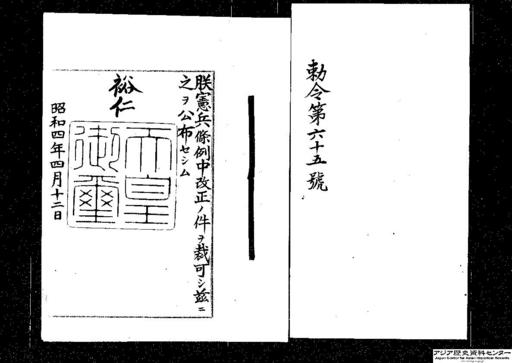 勅令第六十五號
朕憲兵條例中改正ノ件ヲ裁可シ茲ニ
之ヲ公布セシム
裕仁
天皇
御璽
昭和四年四月十二日
アジア歴史資料センター
Japan Center for Asian Historical Records